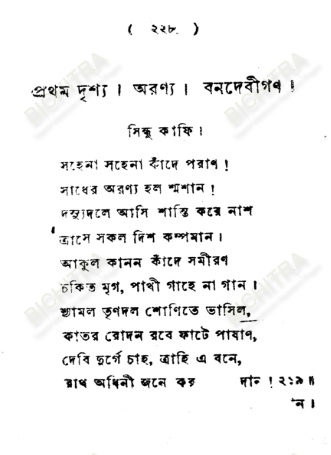 ( ২২৮ )
প্রথম দৃশ্য । অরণ্য । বনদেবীগণ ।
সিন্ধু কাফি ।
সহেনা সহেনা কাঁদে পরাণ !
সাধের অরণ্য হল শ্মশান !
দস্যুদলে আসি শান্তি করে নাশ
ত্রাসে সকল দিশ কম্পমান ।
আকুল কানন কাঁদে সমীরণ
চকিত মৃগ, পাখী গাহে না গান ।
শ্যামল তৃণদল শোণিতে ভাসিল,
কাতর রোদন রবে ফাটে পাষাণ,
দেবি দুর্গে চাহ, ত্রাহি এ বনে,
রাখ অধিনী জনে কর দান ! ২১৯॥
ন ।
BICHITRA
BICHITRA
BICHITRA
BICHITRA